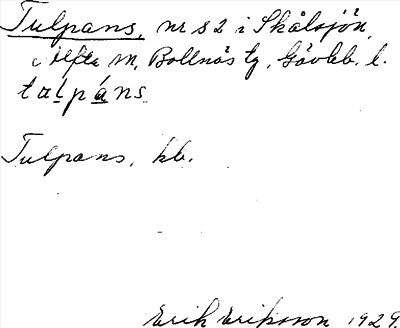 Tulpans, nr s 2 i Skålsjön,
i Alfta sn, Bollnäs tg, Gävleb. l.
talpáns
Tulpans, kb.
Erik Eriksson 1929.